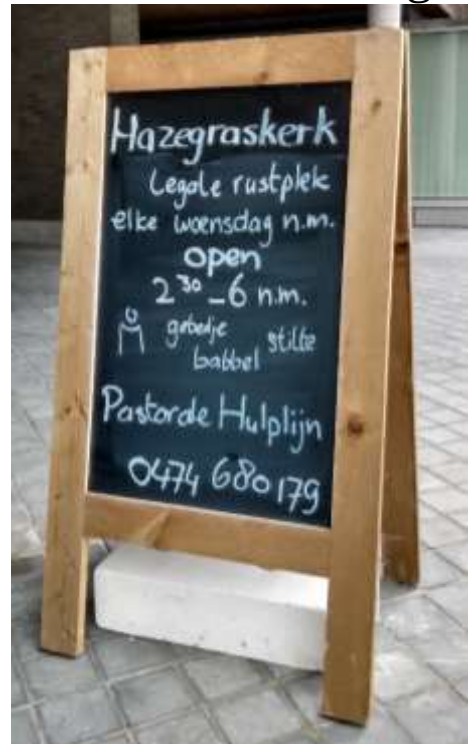 Hazegraskerk
Legale rustplek
elke woensdag n.m.
open
2³⁰-6 n.m.
gebedje stilte
babbel
Pastorde Hulplijn
0474 680179